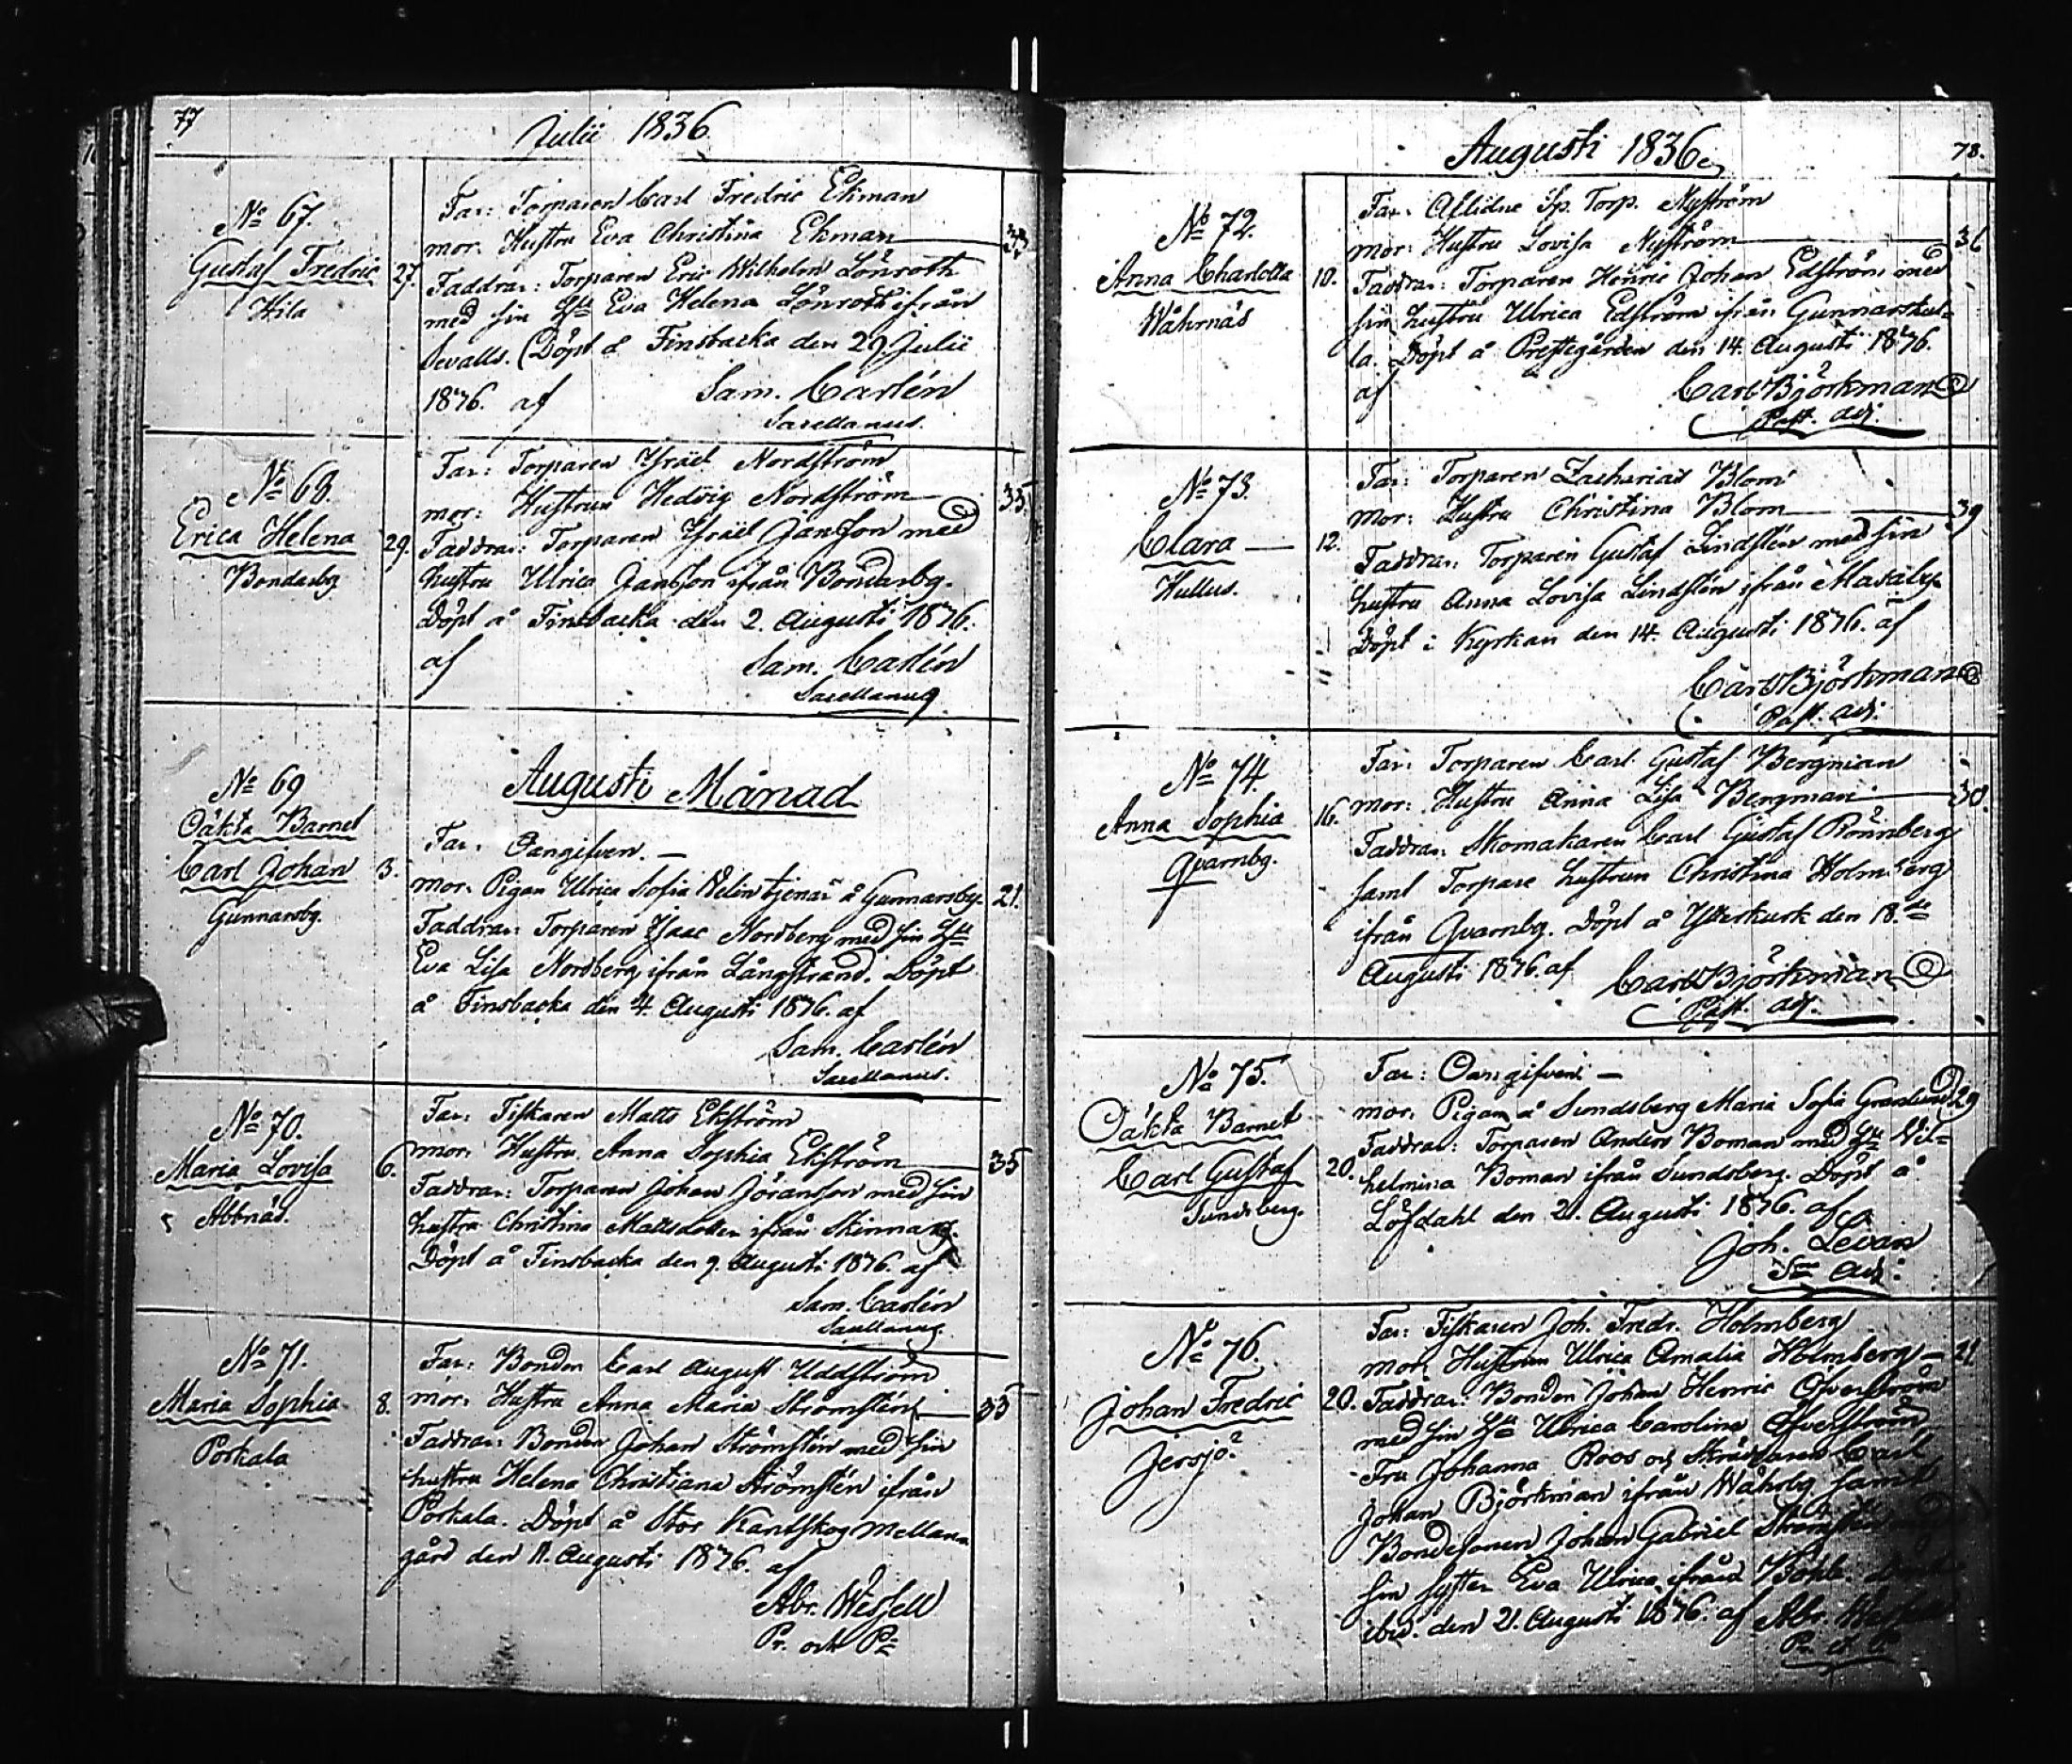 77
Julii 1836
No 67.
Gustaf Fredric
Hila
27.
Far: Torparen Carl Fredric Ekman
mor. Hustru Eva Christina Ekman
33
Faddrar: Torparen Eric Wilhelm Lönroth
med sin Hu Eva Helena Lönroth ifrån
Sevalls. Döpt å Finsbacka den 29 Julii
1876. af Sam. Carlén
Sacellanus.
No 68.
Erica Helena
Bondarbg
29.
Far: Torparen Israel Nordström
mor: Hustrun Hedvig Nordström
35
Faddrar: Torparen Israel Jansson med
hustru Ulrica Jansson ifrån Bondarbg.
Döpt å Finsbacka den 2. Augusti 1876.
af Sam. Carlén
Sacellanus
Augusti Månad
No 69
Oäkta Barnet
Carl Johan
Gunnarsbg.
3.
Far. Oangifven. —
mor. Pigan Ulrica Sofia Welin tjenar å Gunnarsby.
21.
Faddrar: Torparen Isaac Nordberg med sin Hu
Eva Lisa Nordberg ifrån Långstrand. Döpt
å Finsbacka den 4. Augusti 1876. af
Sam. Carlén
Sacellanus.
No 70.
Maria Lovisa
Abbnäs.
6.
Far: Fiskaren Matts Ekström
mor: Hustru Anna Sophia Ekström
35
Faddrar: Torparen Johan Jöransson med sin
hustru Christina Mattsdotter ifrån
Döpt å Finsbacka den 9. Augusti 1876. af
Sam. Carlén
Sacellanus.
No 71.
Maria Sophia
Porkala
8.
Far: Bonden Carl August Uddström
mor: Hustru Anna Maria Strömstén
35
Faddrar: Bonden Johan Strömstén med sin
hustru Helena Christiana Strömstén ifrån
Porkala. Döpt å Stor Kantskog Mellan
gård den 11. Augusti 1876. af
Abr. Wesell
Pr. och P
Augusti 1836
78.
No 72.
Anna Charlotta
Wåhrnäs
10.
Far: Aflidne Sp. Torp. Nyström
mor: Hustru Lovisa Nyström
36
Faddrar: Torparen Henric Johan Edström med
sin hustru Ulrica Edström ifrån Gunnarskul-
la. Döpt å Prestegården den 14. Augusti 1876.
af Carl Björkman
Past. adj.
No 73.
Clara —
Hullus.
12.
Far: Torparen Zacharias Blom
mor: Hustru Christina Blom
39
Faddrar: Torparen Gustaf Lindstén med sin
hustru Anna Lovisa Lindstén ifrån Masaby.
Döpt i Kyrkan den 14. Augusti 1876. af
Carl Björkman
Past. adj.
No 74.
Anna Sophia
Qvarnbg.
16.
Far: Torparen Carl Gustaf Bergman
mor: Hustru Anna Lisa Bergman
30.
Faddrar: Skomakaren Carl Gustaf Rönnberg
samt Torpare hustrun Christina Holmberg
ifrån Qvarnbg. Döpt å Ytterkurk den 18.de
Augusti 1876. af Carl Björkman
Past. adj.
No 75.
Oäkta Barnet
Carl Gustaf
Sundsberg.
20.
Far: Oangifven. —
mor: Pigan å Sundsberg Maria Sofia Granlund
29
Faddrar: Torparen Anders Boman med Hu Wil-
helmina Boman ifrån Sundsberg. Döpt å
Löfdahl den 21. Augusti 1876. af
Joh. Levan
adj.
No 76.
Johan Fredric
Jersjö
20.
Far: Fiskaren Joh. Fredr. Holmberg
mor: Hustrun Ulrica Amalia Holmberg —
21
Faddrar: Bonden Johan Henric Öfverström
med sin Hu Ulrica Carolina Öfverström
Fru Johanna Roos och Skräddaren Carl
Johan Björkman ifrån Wåhrbg samt
Bondesonen Johan Gabriel
sin syster Eva Ulrica ifrån
ibid. den 21. Augusti 1876. af Abr. Wesell